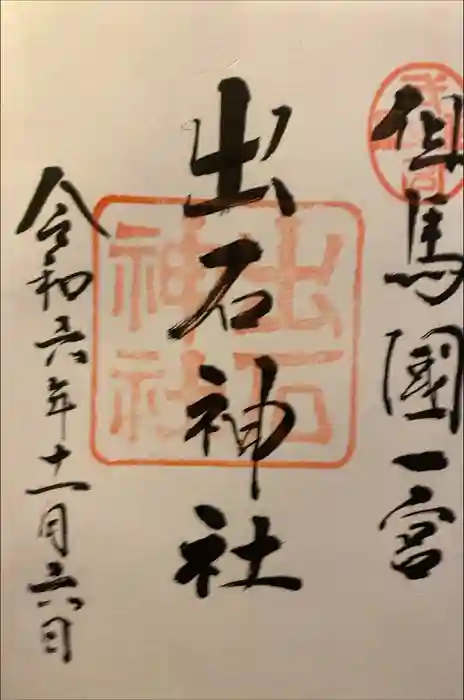 但馬國一宮
出石神社
令和六年十一月六日
出石
神社